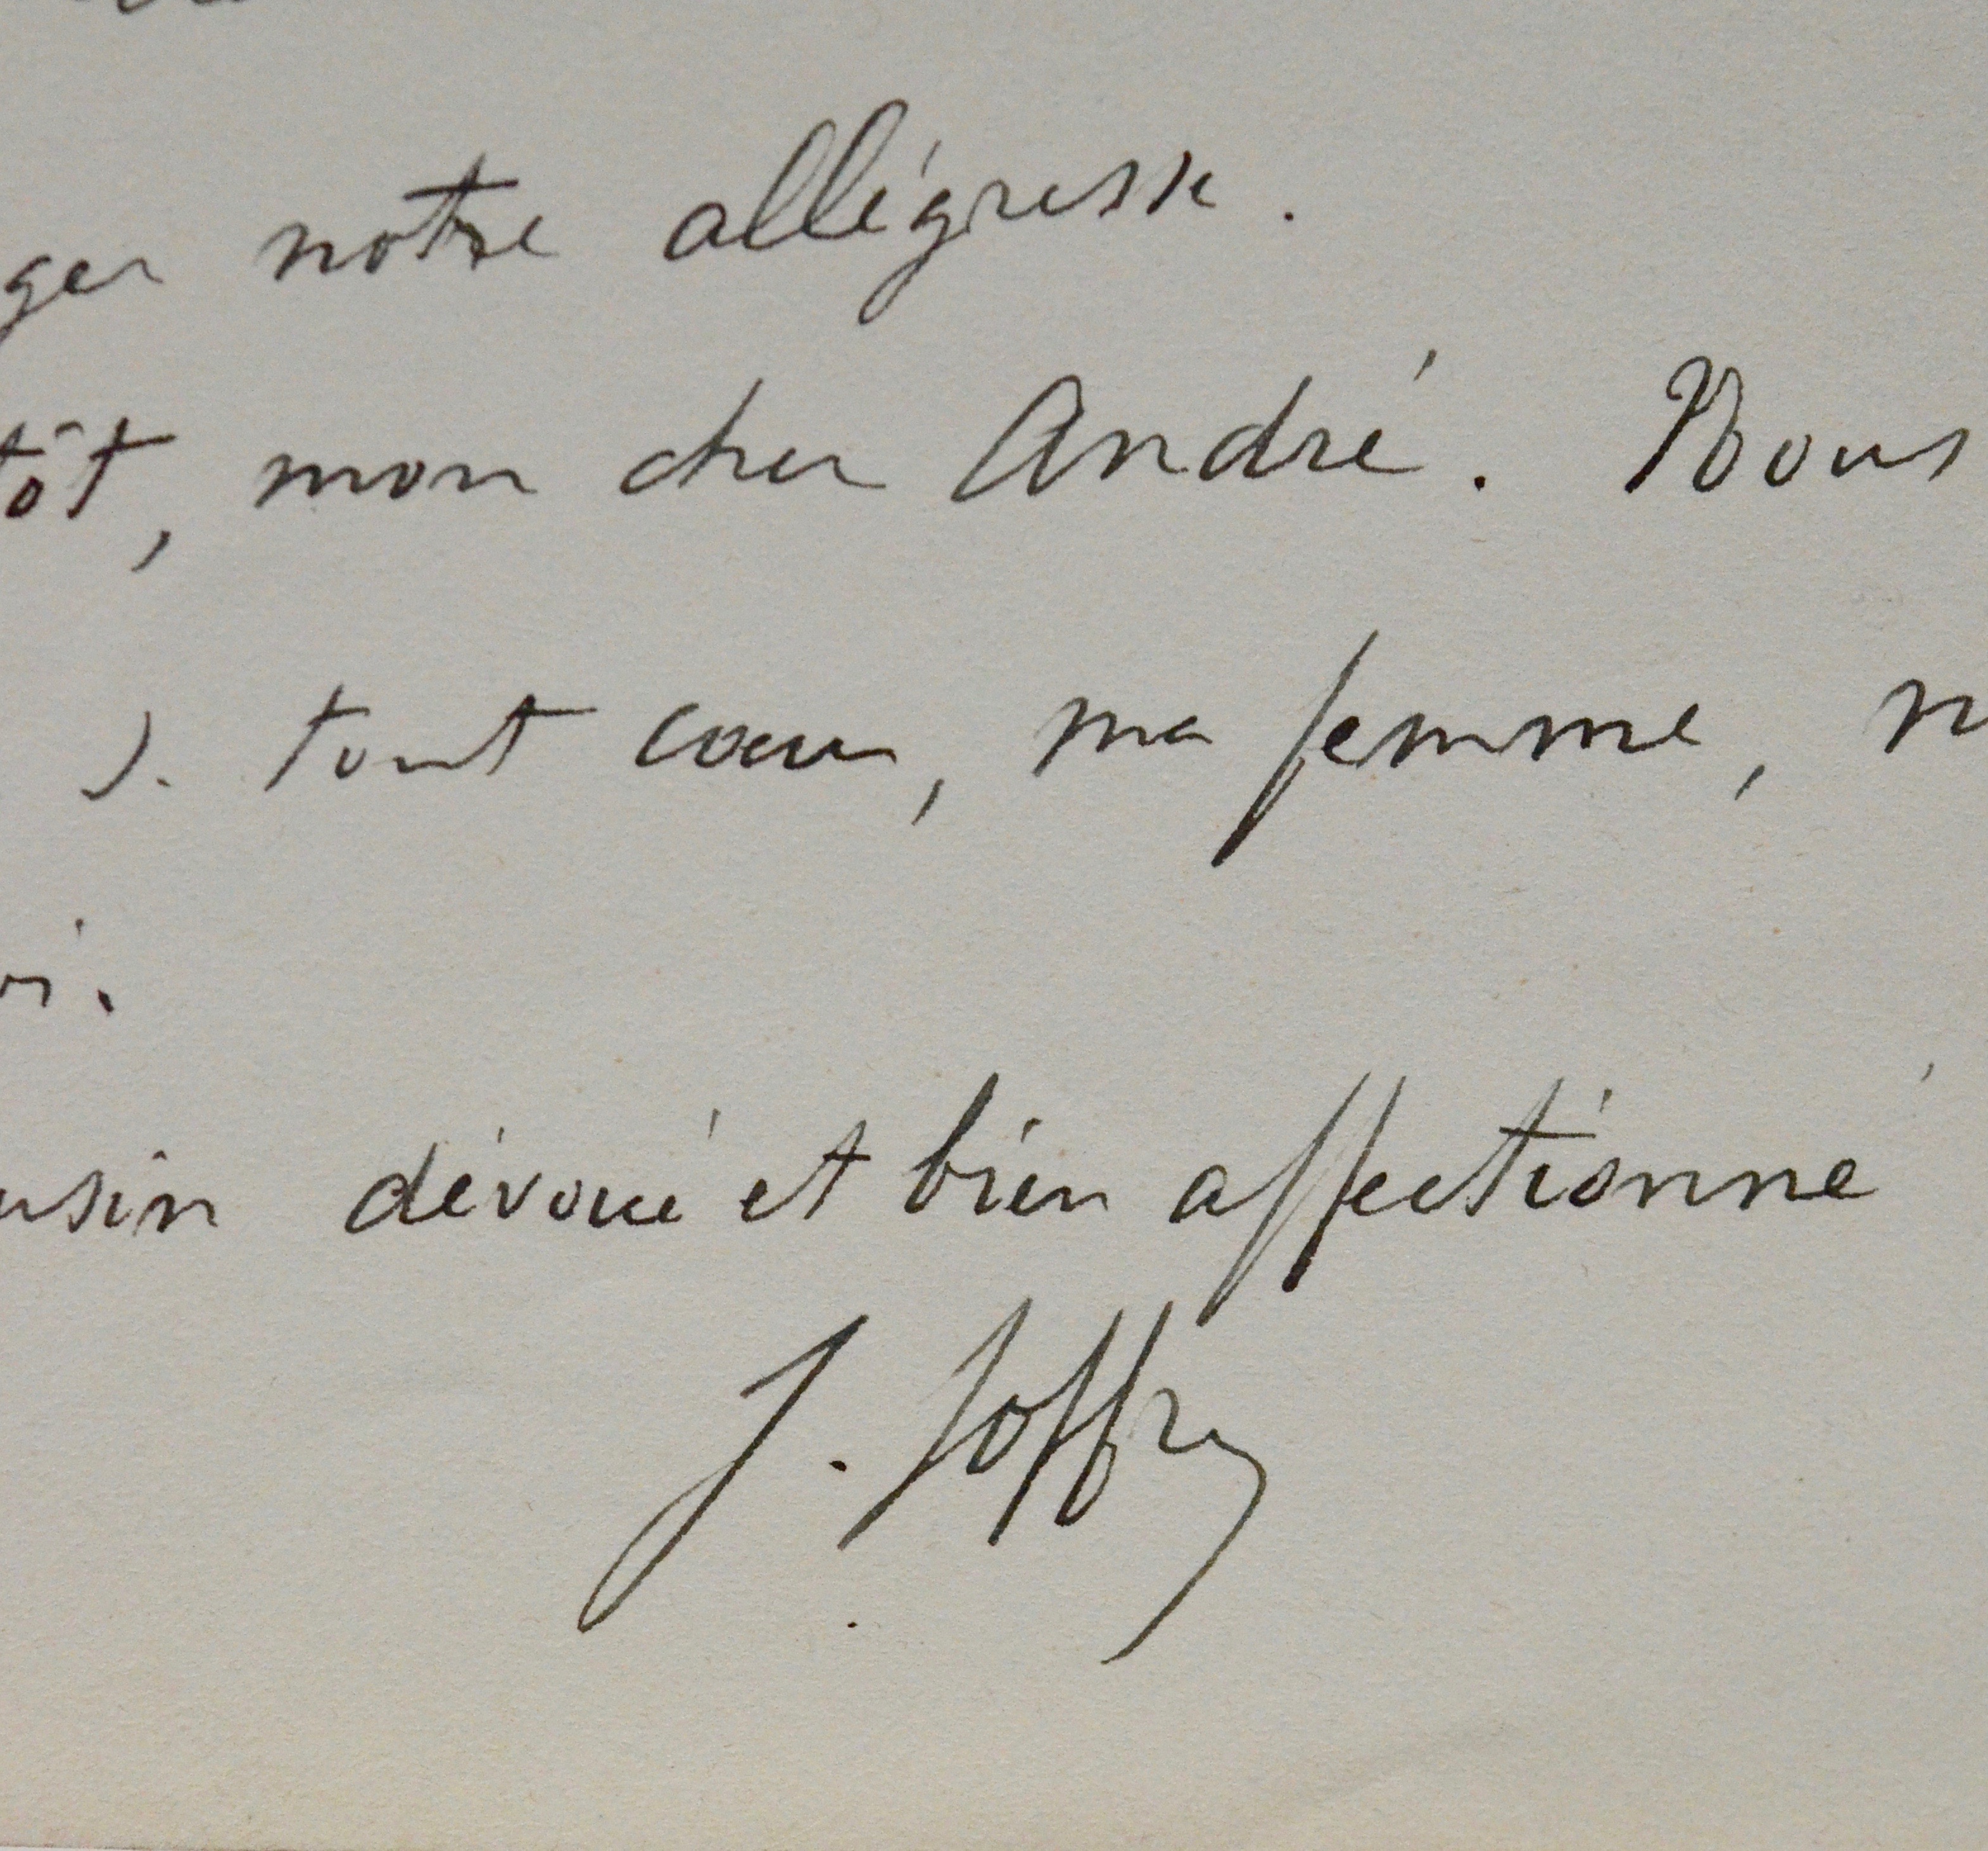 ger notre allégresse.
tôt, mon cher André. Nous
). tout cœur, ma femme, n
oi.
usin dévoué et bien affectionné
J. Joffre